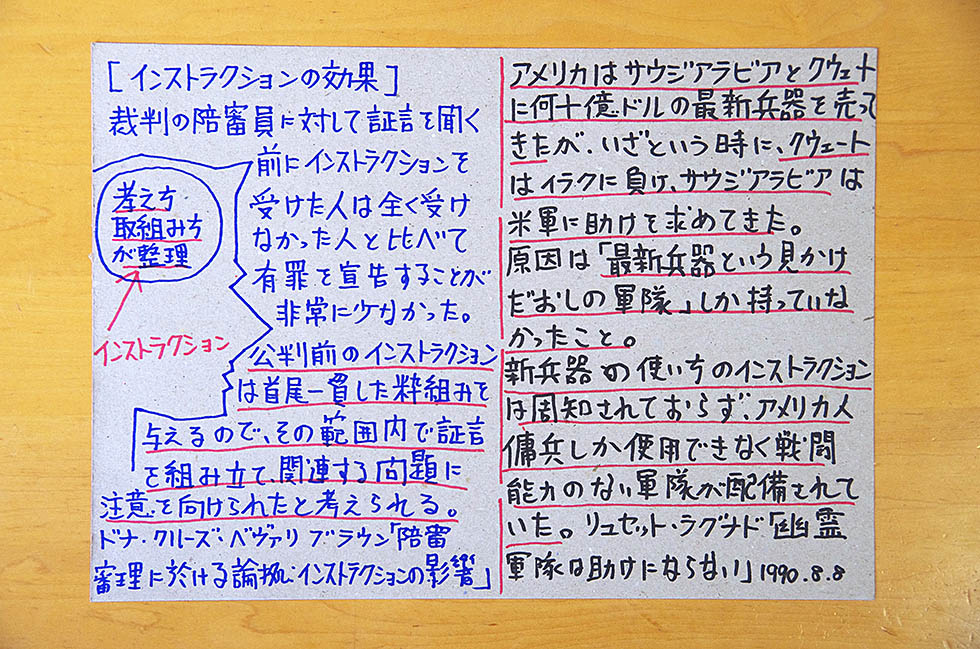 [インストラクションの効果]
裁判の陪審員に対して証言を聞く
前にインストラクションを
受けた人は全く受け
なかった人と比べて
有罪を宣告することが
非常に少なかった。
考え方
取組み方
が整理
インストラクション
公判前のインストラクション
は首尾一貫した枠組みを
与えるので、その範囲内で証言
を組み立て、関連する問題に
注意を向けられたと考えられる。
ドナ・クルーズ・ベヴァリ ブラウン「陪審
審理に於ける論拠・インストラクションの影響」
アメリカはサウジアラビアとクウェート
に何十億ドルの最新兵器を売って
きたが、いざという時に、クウェート
はイラクに負け、サウジアラビアは
米軍に助けを求めてきた。
原因は「最新兵器という見かけ
だおしの軍隊」しか持っていな
かったこと。
新兵器の使い方のインストラクション
は周知されておらず、アメリカ人
傭兵しか使用できなく戦闘
能力のない軍隊が配備されて
いた。リュセット・ラグナド「幽霊
軍隊は助けにならない」1990.8.8